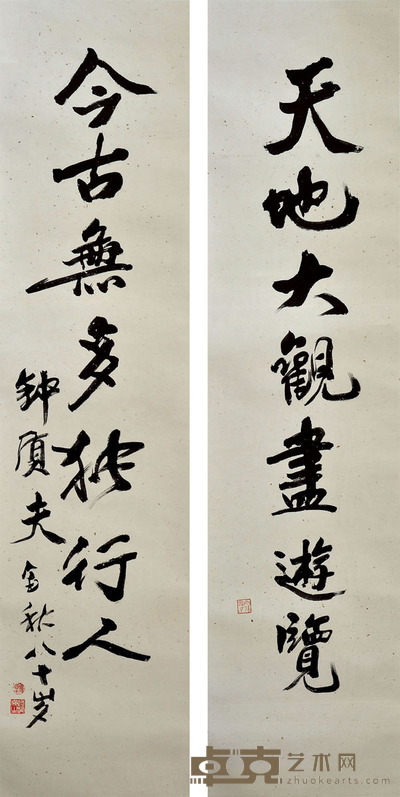 天地大觀盡遊覽
今古無多獨行人
鍾質夫
金秋八十岁
卓克艺术网
zhuokearts.com